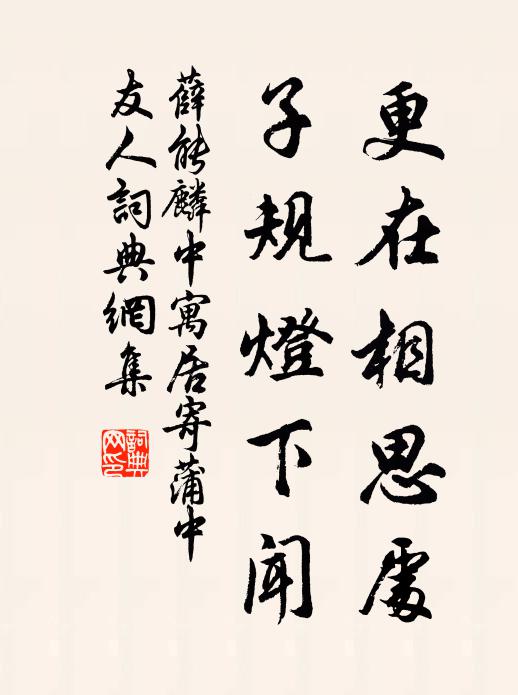 更在相思處
子規燈下聞
薛能麟中寓居寄蒲中
友人詞典網集
詞典
网印